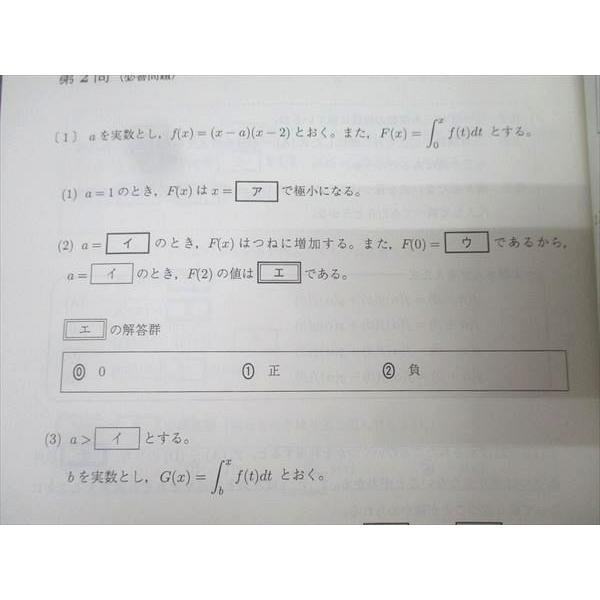 第2問 (必答問題)
〔1〕 aを実数とし,f(x)=(x−a)(x−2)とおく。また,F(x)=∫₀ˣ f(t)dt とする。
(1) a=1のとき,F(x)はx= ア で極小になる。
(2) a= イ のとき,F(x)はつねに増加する。また,F(0)= ウ であるから,
a= イ のとき,F(2)の値は エ である。
エ の解答群
⓪ 0 ① 正 ② 負
(3) a> イ とする。
bを実数とし,G(x)=∫_b^x f(t)dt とおく。